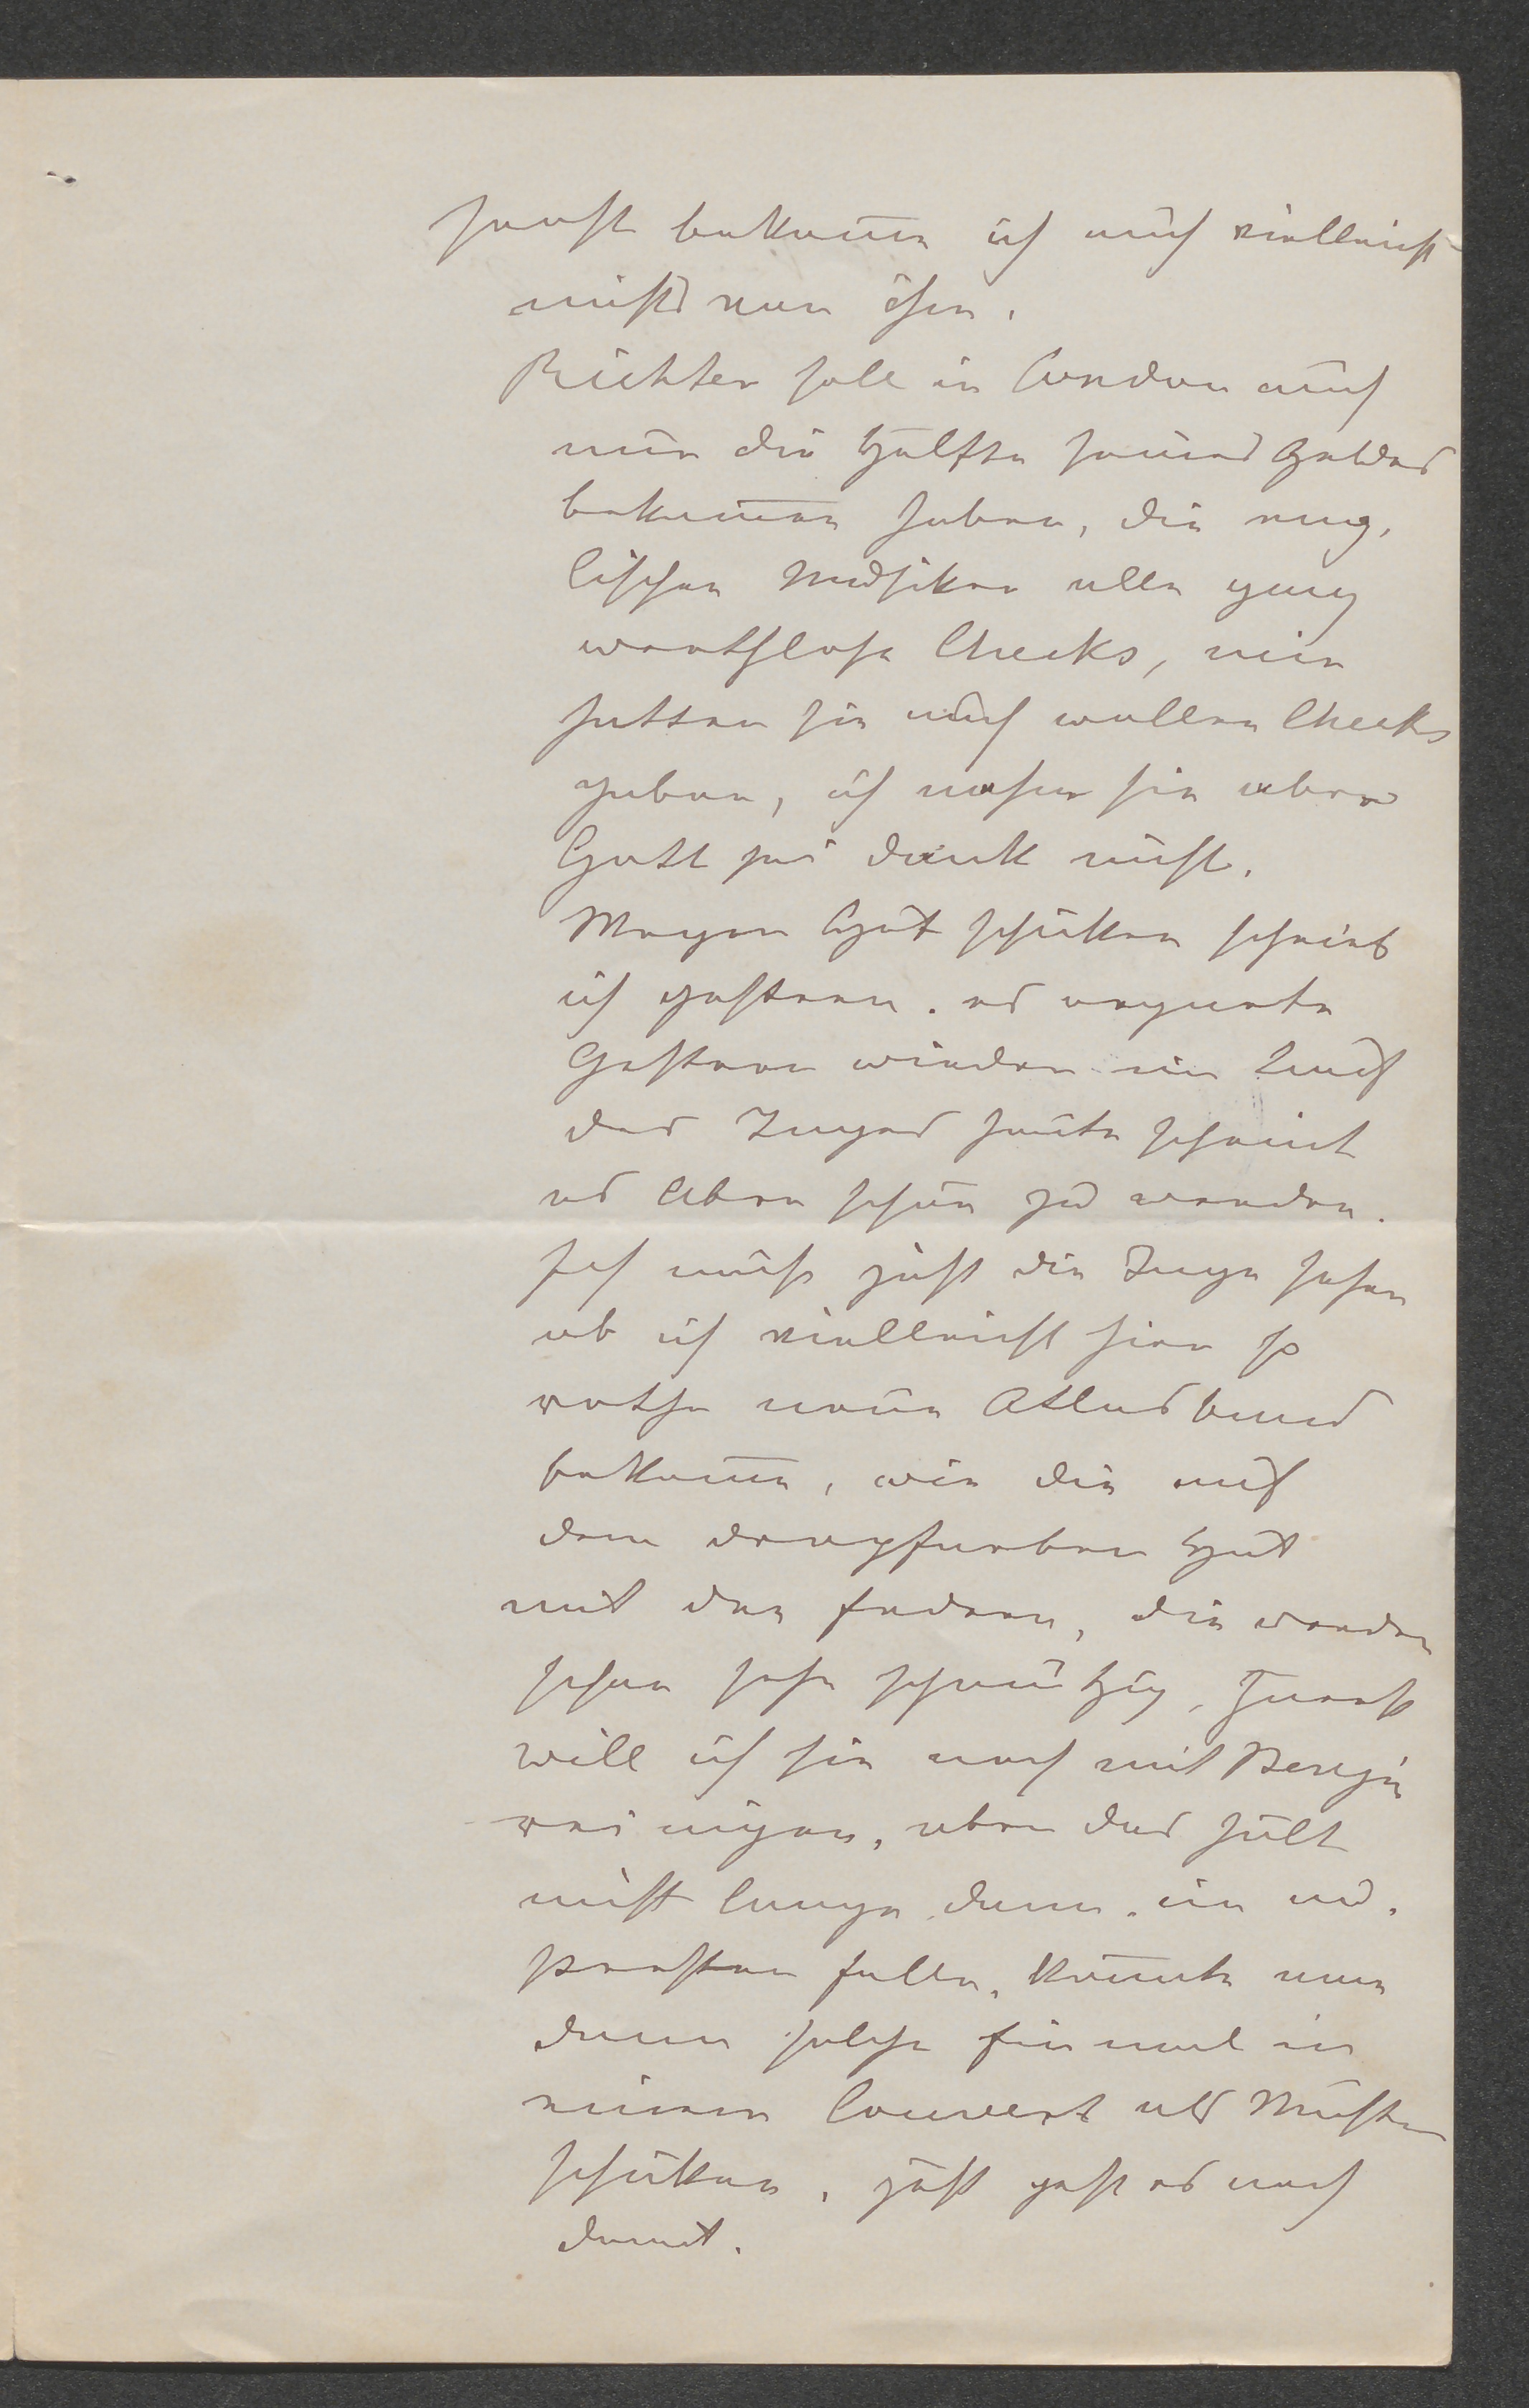 sonst bekom̅e ich auch vielleicht
nichts von ihm.
Richter soll in London auch
nur die Hälfte seines Geldes
bekom̅en haben, die eng,
lischen Musiker alle ganz
werthlose Checks, mir
hatten sie auch wollen Checks
geben, ich nahm sie aber
Gott sei dank nicht.
Wegen Hut schicken schrieb
ich gestern. es regnete
Gestern wieder im Lauf
des Tages heute scheint
es Aber schön zu werden.
Ich muß jetzt die Tage sehen
ob ich vielleicht hier so
rothe neue Atlasband
bekom̅e, wie die auf
dem drapfarben Hut
mit den federn, die werden
schon sehr schmutzig, Zuerst
will ich sie noch mit Benzin
reinigen, aber das hält
nicht lange dann. im äu,
sersten falle, kön̅te man
dann solche hier mal in
einem Couvert als Muster
schicken, jetzt geht es noch
damit.